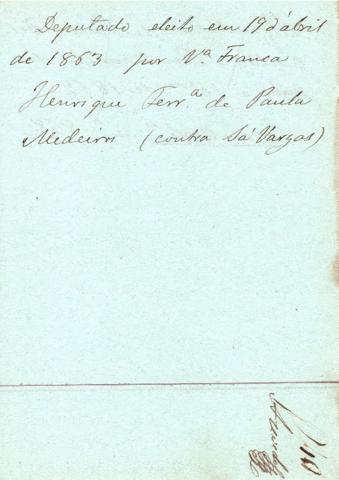 Deputado eleito em 19 d'abril
de 1863 por V.ª Franca
Henrique Ferr.ª de Paula
Medeiros (contra Sá Vargas)